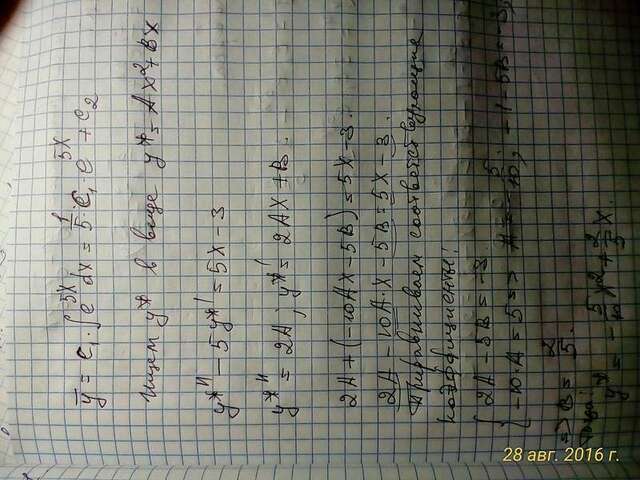 ȳ = C₁·∫e^5x dx = 1/5·C₁·e^5x + C₂
Ищем y* в виде y* = Ax² + Bx
y*'' − 5y*' = 5x − 3
y*'' = 2A; y*' = 2Ax + B.
2A + (−10Ax − 5B) = 5x − 3.
2A − 10A·x − 5B = 5x − 3.
Приравниваем соответствующие
коэффициенты:
{ 2A − 5B = −3
{ −10·A = 5 => A = −5/10; −1 − 5B = −3;
=> B = 2/5.
Тогда: y* = −5/10x² + 2/5x.
28 авг. 2016 г.